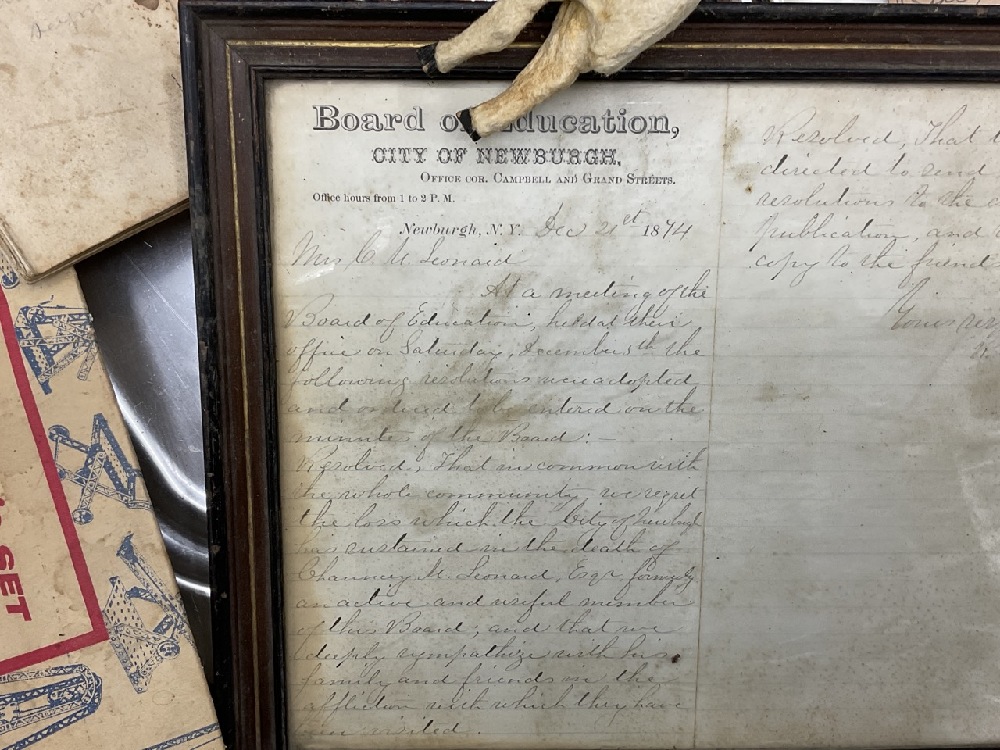 Board of Education,
CITY OF NEWBURGH.
OFFICE COR. CAMPBELL AND GRAND STREETS.
Office hours from 1 to 2 P. M.
Newburgh, N. Y. Dec 21st 1874
Mrs C. M. Leonard
At a meeting of the
Board of Education, held at their
office on Saturday, December 5th the
following resolutions were adopted
and ordered to be entered on the
minutes of the Board: —
Resolved, That in common with
the whole community, we regret
the loss which the City of Newburgh
has sustained in the death of
Chauncey M. Leonard, Esqr, formerly
an active and useful member
of this Board; and that we
deeply sympathize with his
family and friends in the
affliction with which they have
been visited.
Resolved, That
directed to send
resolutions to the
publication, and
copy to the friend
Yours
SET